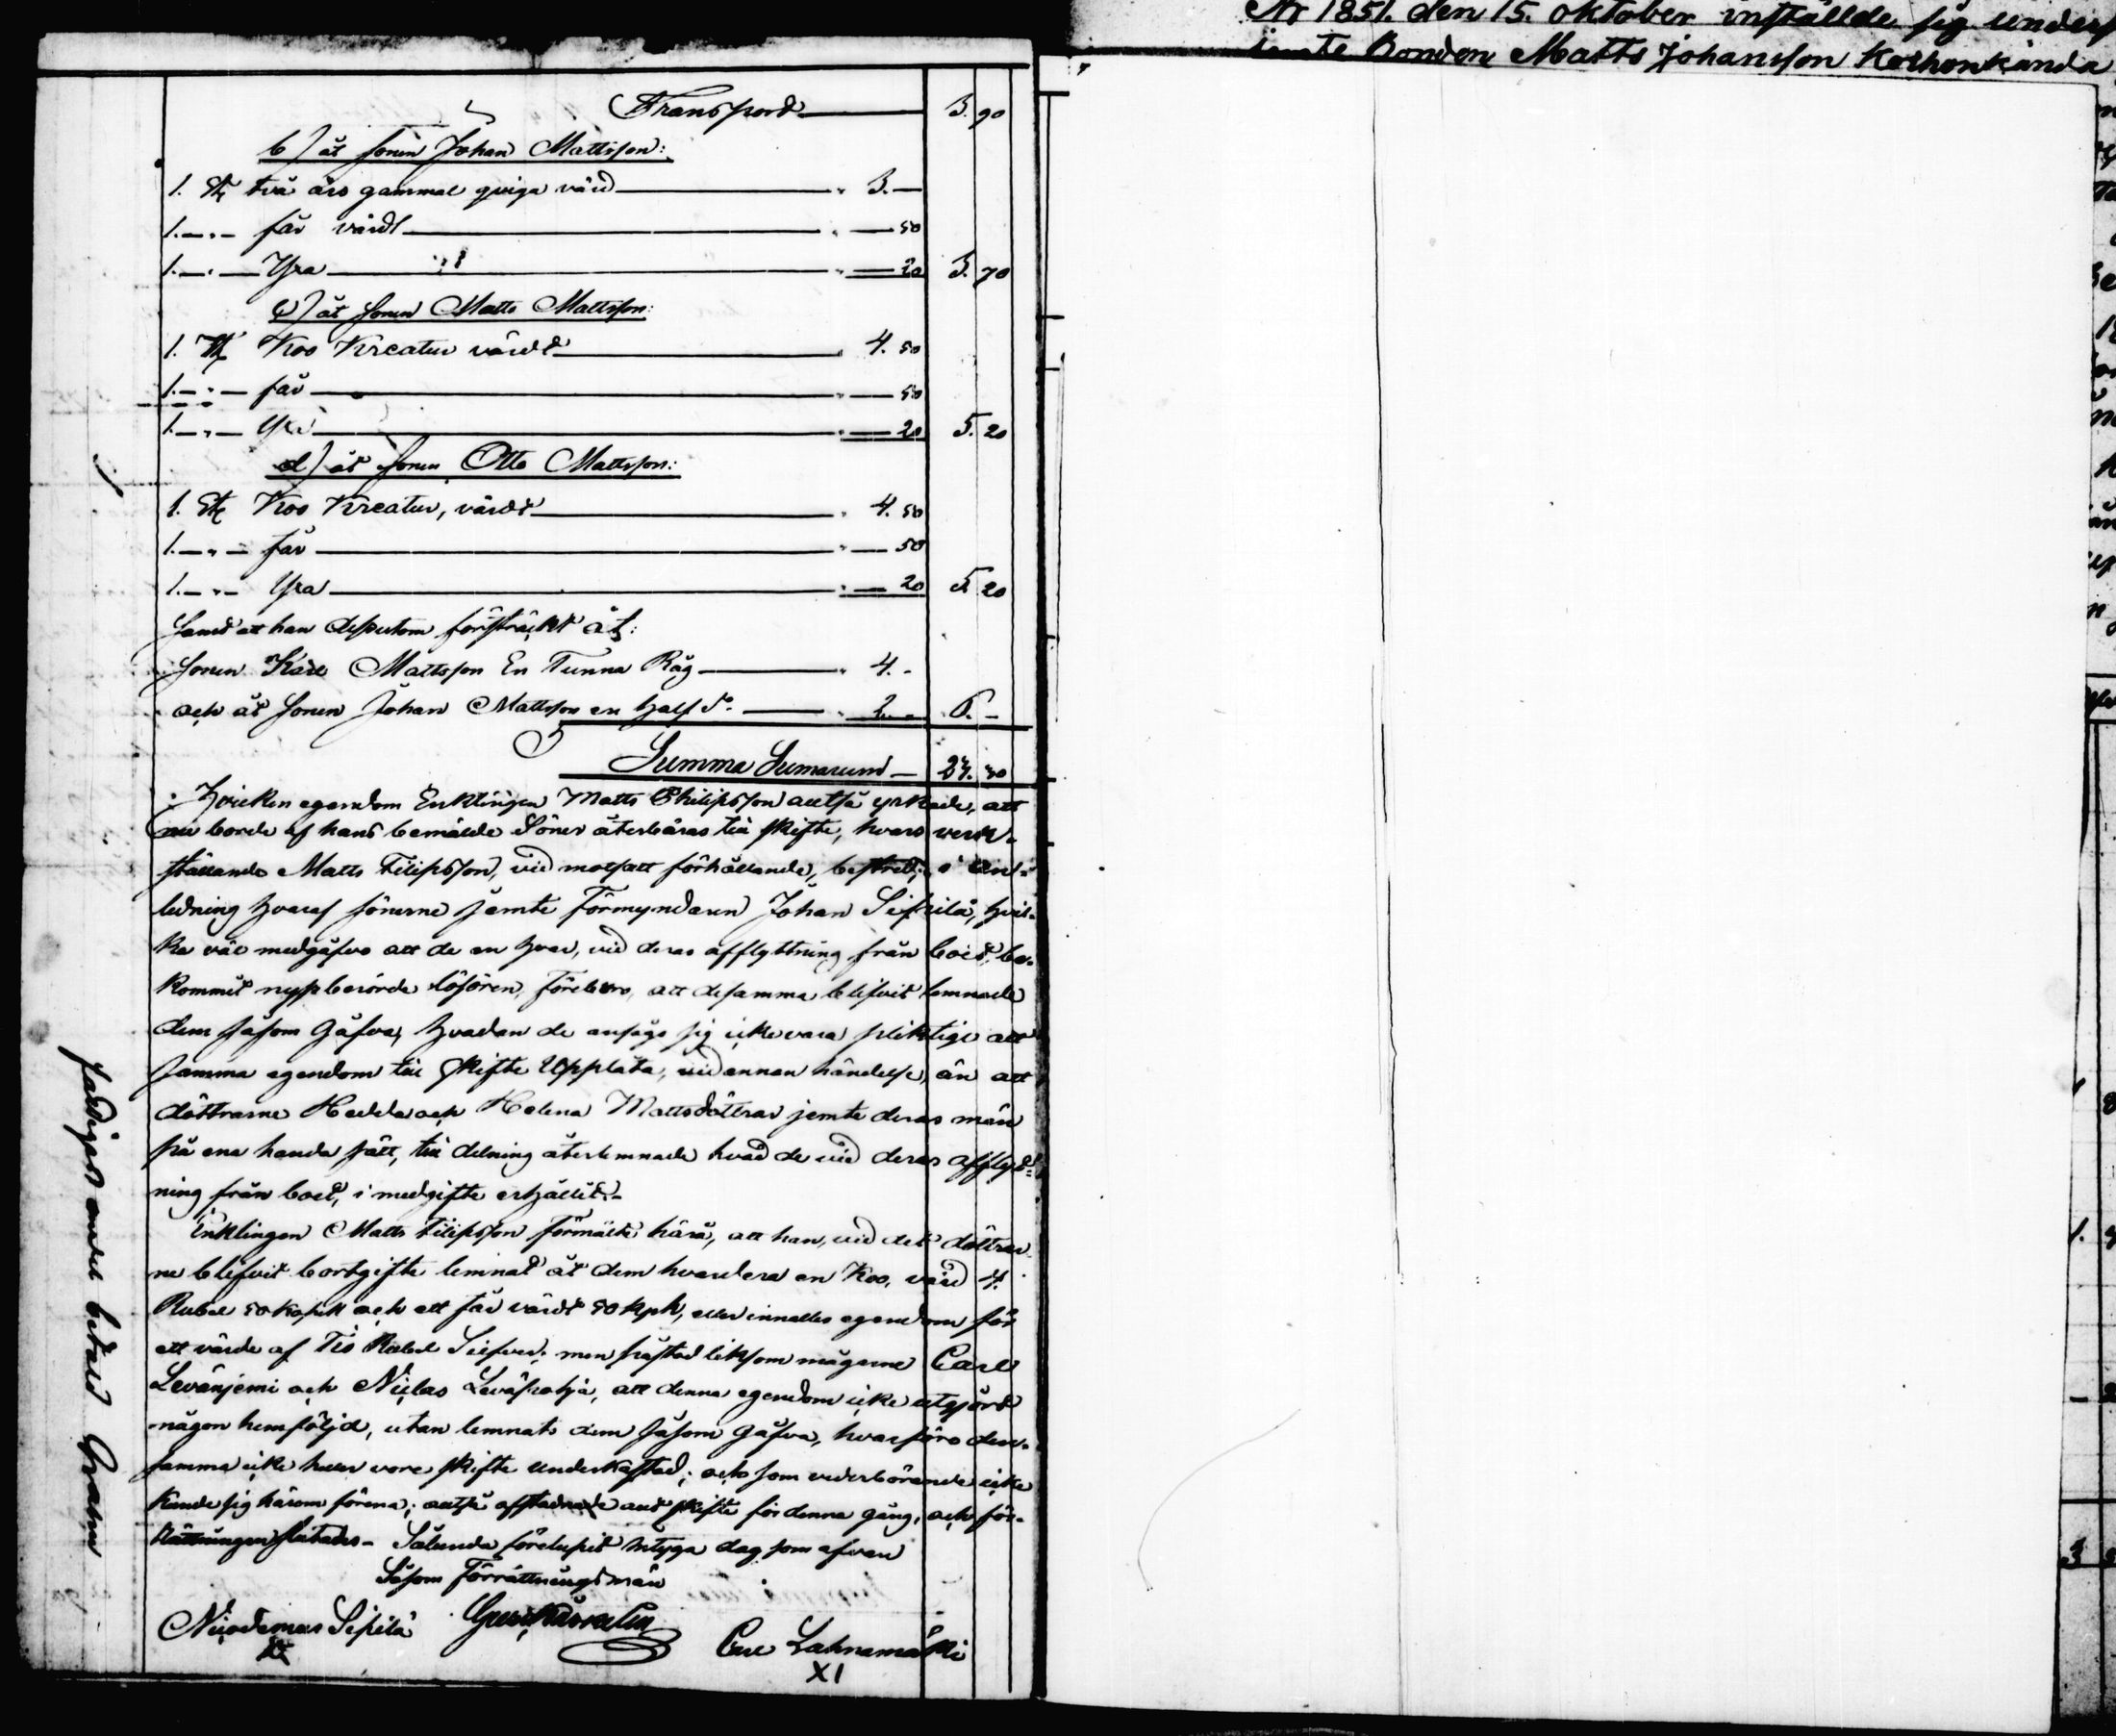 Transport 3. 90
b) åt Sonen Johan Mattsson:
1. St. två års gammal qviga värd " 3. —
1. — " — får värdt " — 50
1. — " — Yxa " — 20 3. 70
c) åt Sonen Matts Mattsson:
1. St. Koo Kreatur värdt " 4. 50
1. — " — får " — 50
1. — " — Yxa " — 20 5. 20
d) åt Sonen Otto Mattsson:
1. St. Koo Kreatur, värdt " 4. 50
1. — " — får " — 50
1. — " — Yxa " — 20 5 20
Samt att han desutom försträckt åt:
Sonen Karl Mattsson En Tunna Råg " 4. -
och åt Sonen Johan Mattsson en half do. " 2. - 6. -
Summa Sumarum
Hvilken egendom Enklingen Matts Philipsson altså yrkade, att
nu borde af hans bemälde Söner återbäras till skifte, hvars verk-
ställande Matts Filipsson, vid motsatt förhållande, bestred; i an-
ledning hvaraf sönerne jämte Förmyndaren Johan Sippilä, hvil-
ka väl medgåfvo att de en hvar, vid deras afflyttning från boet, be-
kommit nyssberörde lösören, förebåro, att desamma blifvit lemnade
dem såsom Gåfva, hvadan de ansågo sig icke vara pliktige att
samma egendom till skifte Upplåta, vid annan händelse, än att
döttrarne Hedda och Helena Mattsdöttrar jemte deras män
på ena handa sätt, till delning återlemnade hvad de vid deras afflytt-
ning från boet, i medgifte erhållit.-
Enklingen Matts Filipsson förmälte härå, att han, vid det döttrar-
ne blifvit bortgifte lemnat åt dem hvardera en Koo, värd 4.
Rubel 50 kopek och ett får värdt 50 kpk, eller innalles egendom för
ett värde af Tio Rubel Silfver; men påstod liksom mågarne Carl
Levänjemi och Niclas, att denna egendom icke utgjord
någon hemföljd, utan lemnats dem såsom gåfva, hvarföre den-
samma icke heller vore skifte underkastad; och som vederbörande icke
kunde sig härom förena; altså afstadnade allt skifte för denna gång, och för-
rättningen slutades - Sålunda förelupit intyga dag som ofvan
Såsom Förrättningsmän
Nicodemus Sipilä Carl Lahnamäki
XI
Ar 1851. den 15. oktober inställde sig unders
jemte Bonden Matts Johansson